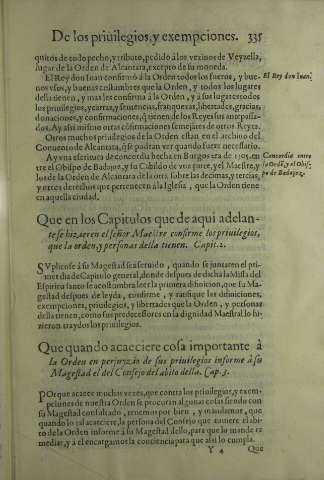 De los priuilegios, y exempciones. 335
quitos de todo pecho, y tributo, pedido à los vezinos de Veyzella,
lugar de la Orden de Alcantara, excepto de su moneda.
El Rey don Iuan confirmò à la Orden todos los fueros, y bue-
El Rey don Iuan.
nos vsos, y buenas costumbres que la Orden, y todos los lugares
della tienen, y mas les confirma à la Orden, y à sus lugares todos
los priuilegios, y cartas, y sentencias, franquezas, libertades, gracias,
donaciones, y confirmaciones, que tienen de los Reyes sus antepassa-
dos. Ay assi mismo otras confirmaciones semejantes de otros Reyes.
Otros muchos priuilegios de la Orden estan en el archiuo del
Conuento de Alcantara, que se podran ver quando fuere necessario.
Ay vna escritura de concordia hecha en Burgos era de 1305. en-
Concordia entre
tre el Obispo de Badajoz, y su Cabildo de vna parte, y el Maestre, y
la Ordē, y el Obis-
los de la Orden de Alcantara de la otra sobre las decimas, y tercias,
po de Badajoz.
y otros derechos que pertenecen à la Iglesia, que la Orden tiene
en aquella ciudad.
Que en los Capitulos que de aqui adelan-
te se hizieren el señor Maestre confirme los priuilegios,
que la orden, y personas della tienen. Capit. 2.
SVplicase à su Magestad sea seruido, quando se juntaren el pri-
mer dia de Capitulo general, donde despues de dicha la Missa del
Espiritu santo se acostumbra leer la primera difinicion, que su Ma-
gestad despues de leyda, confirme, y ratifique las difiniciones,
exempciones, priuilegios, y libertades que la Orden, y personas
della tienen, como sus predecessores en la dignidad Maestral lo hi-
zieron
Que quando acaeciere cosa importante à
la Orden en perjuyzio de sus priuilegios informe à su
Magestad el del Consejo del abito della. Cap. 3.
POrque acaece muchas vezes, que contra los priuilegios, y exem-
pciones de nuestra Orden se procuran algunas cosas siendo con
su Magestad consultado, tenemos por bien, y mandamos, que
quando lo tal acaeciere, la persona del Consejo que tuuiere el abi-
to de la Orden informe à su Magestad dello, para que lo mande re
mediar, y à el encargamos la conciencia para que assi lo cumpla.
Y 4 Que